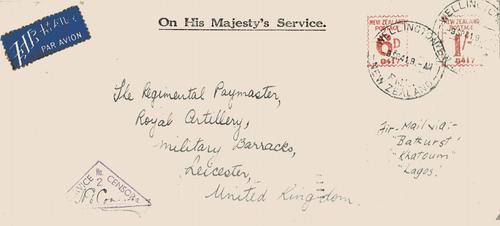 AIR MAIL
PAR AVION
On His Majesty's Service.
NEW ZEALAND
POSTAGE
6D
0417
NEW ZEALAND
POSTAGE
1/-
0417
WELLINGTON
NEW ZEALAND
The Regimental Paymaster,
Royal Artillery,
Military Barracks,
Leicester,
United Kingdom.
Air-Mail via:-
"Bathurst"
"Khatoum"
"Lagos"
2
CENSOR